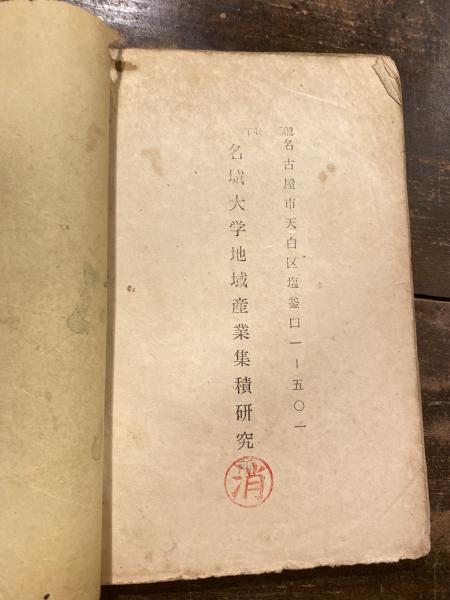 〒4 502
名古屋市天白区塩釜口一ー五〇一
名城大学地域産業集積研究
消